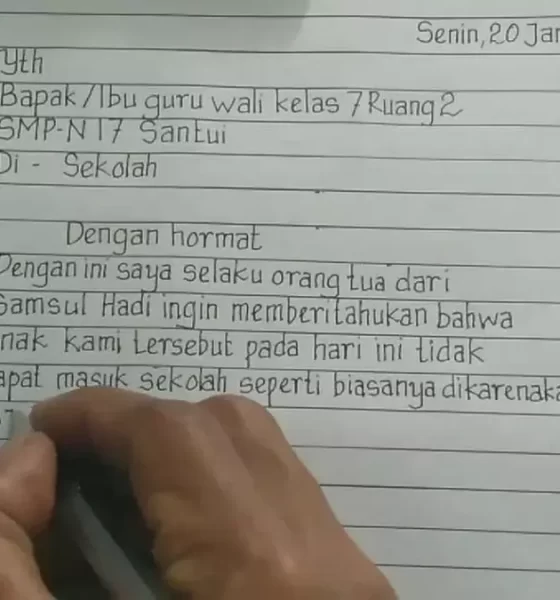 Senin, 20 Jar
Yth
Bapak/Ibu guru wali kelas 7 Ruang 2
SMP-N 17 Santui
Di - Sekolah
Dengan hormat
Dengan ini saya selaku orang tua dari
Samsul Hadi ingin memberitahukan bahwa
nak kami tersebut pada hari ini tidak
apat masuk sekolah seperti biasanya dikarenaka